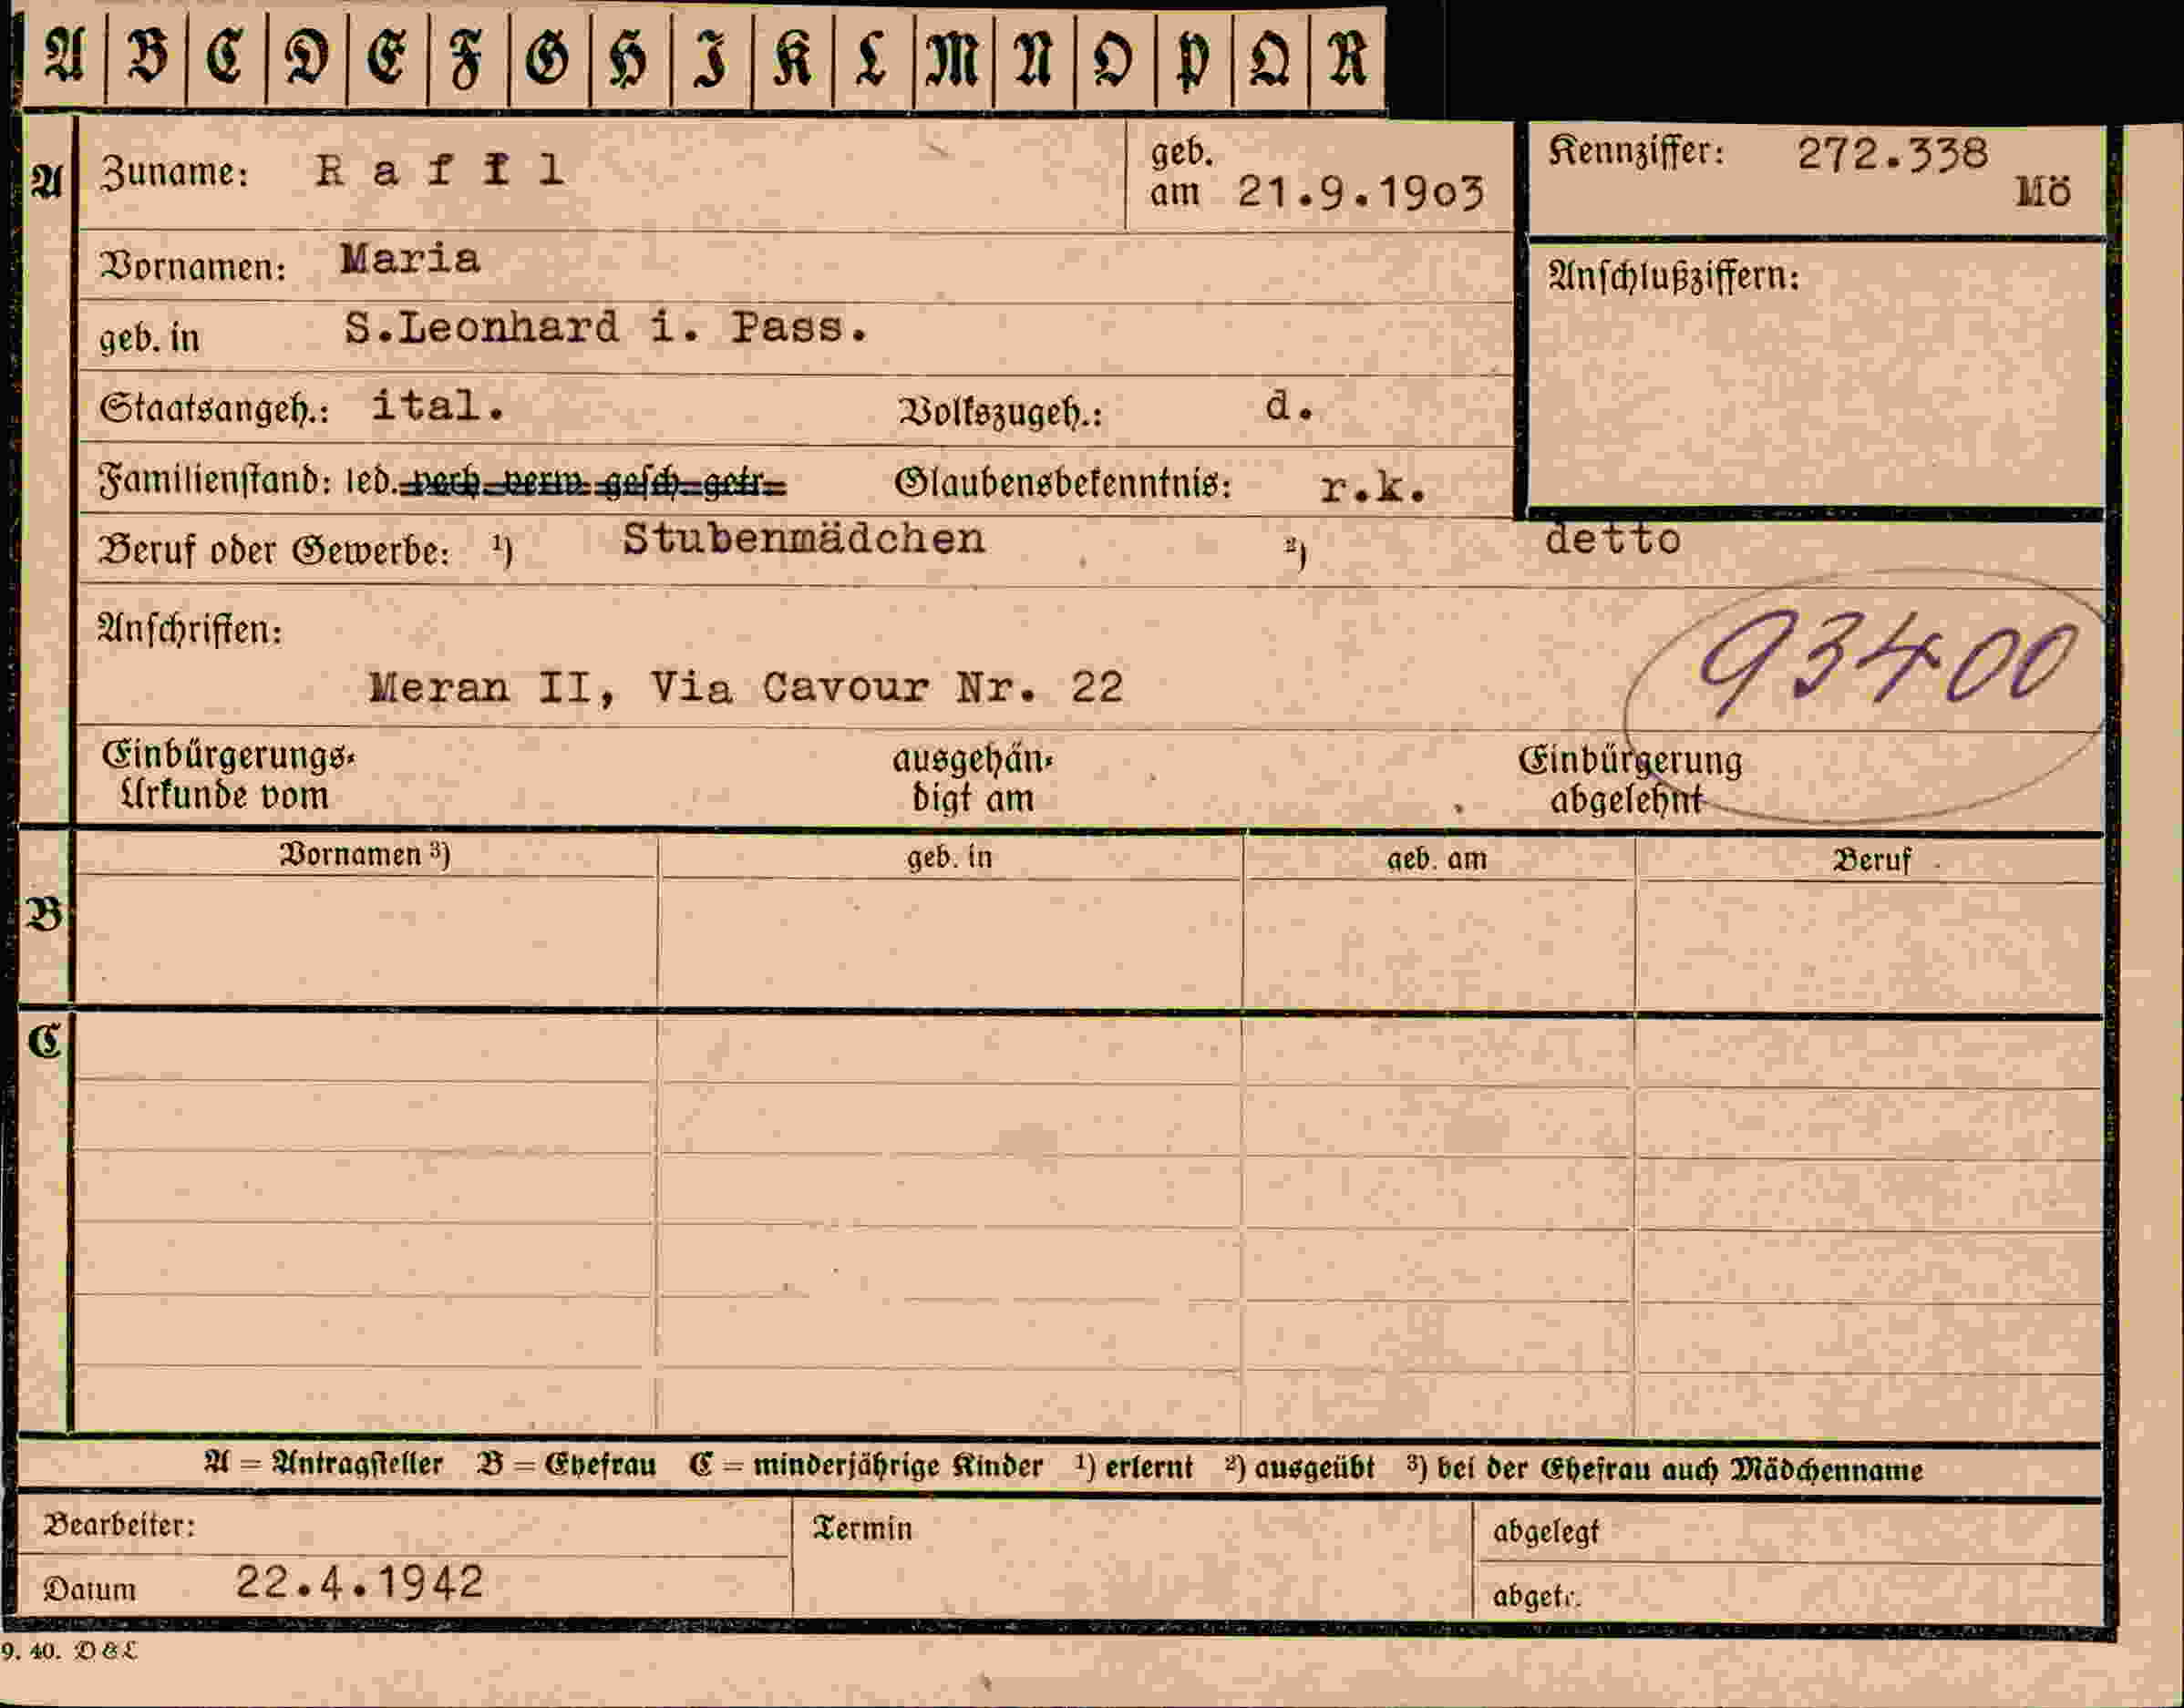 A B C D E F G H I K L M N O P Q R
A Zuname: Raffl geb. am 21.9.1903 Kennziffer: 272.338 Mö
Vornamen: Maria Anschlußziffern:
geb. in S.Leonhard i. Pass.
Staatsangeh.: ital. Volkszugeh.: d.
Familienstand: led. verh. verw. gesch. getr. Glaubensbekenntnis: r.k.
Beruf oder Gewerbe: ¹) Stubenmädchen ²) detto
Anschriften: 93400
Meran II, Via Cavour Nr. 22
Einbürgerungs- ausgehän- Einbürgerung
Urkunde vom digt am abgelehnt
Vornamen ³) geb. in geb. am Beruf
B
C
A = Antragsteller B = Ehefrau C = minderjährige Kinder ¹) erlernt ²) ausgeübt ³) bei der Ehefrau auch Mädchenname
Bearbeiter: Termin abgelegt
Datum 22.4.1942 abgetr.
9. 40. D&L